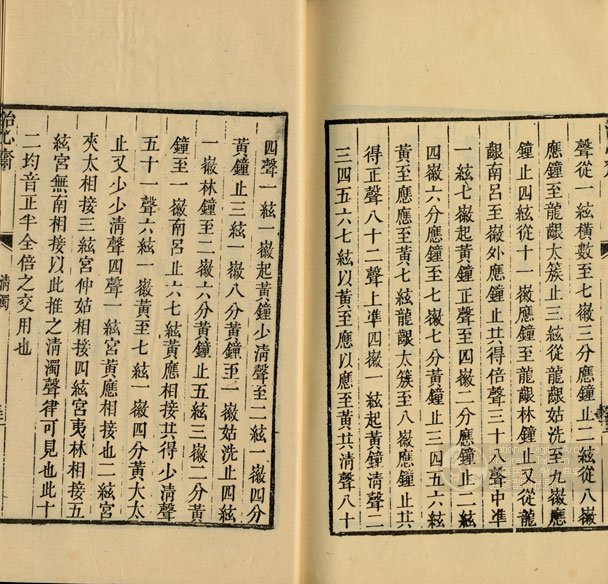 聲從一絃橫數至七徽三分應鐘止二絃從八徽
應鐘至龍齦太簇止三絃從龍齦姑洗至九徽應
鐘止四絃從十一徽應鐘至龍齦林鐘止又從龍
齦南呂至徽外應鐘止共得倍聲三十八聲中準
一絃七徽起黃鐘正聲至四徽二分應鐘止二絃
四徽六分應鐘至七徽七分應鐘止三四五六絃
黃至應應至黃七絃龍齦太簇至八徽應鐘止共
得正聲八十二聲上準四徽一絃起黃鐘清聲二
三四五六七絃以黃至應以應至黃共清聲八十
四聲一絃一徽起黃鐘少清聲至二絃一徽四分
黃鐘止三絃一徽八分黃鐘至一徽姑洗止四絃
一徽林鐘至二徽六分黃鐘止五絃三徽二分黃
鐘至一徽南呂止六七絃黃應相接共得少清聲
五十一聲六絃一徽黃至七絃一徽四分黃大太
止又少少清聲四聲一絃宮黃應相接也二絃宮
夾太相接三絃宮仲姑相接四絃宮夷林相接五
絃宮無南相接以此推之清濁聲律可見也此十
二均音正半全倍之交用也
清濁